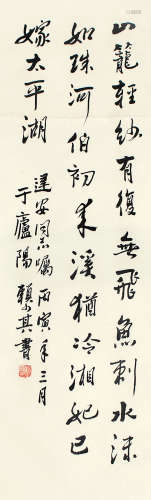 山籠輕紗有復無飛魚刺水沫
如珠河伯初来溪猶冷湘妃已
嫁太平湖
達安同志囑丙寅年三月
于廬陽賴少其書